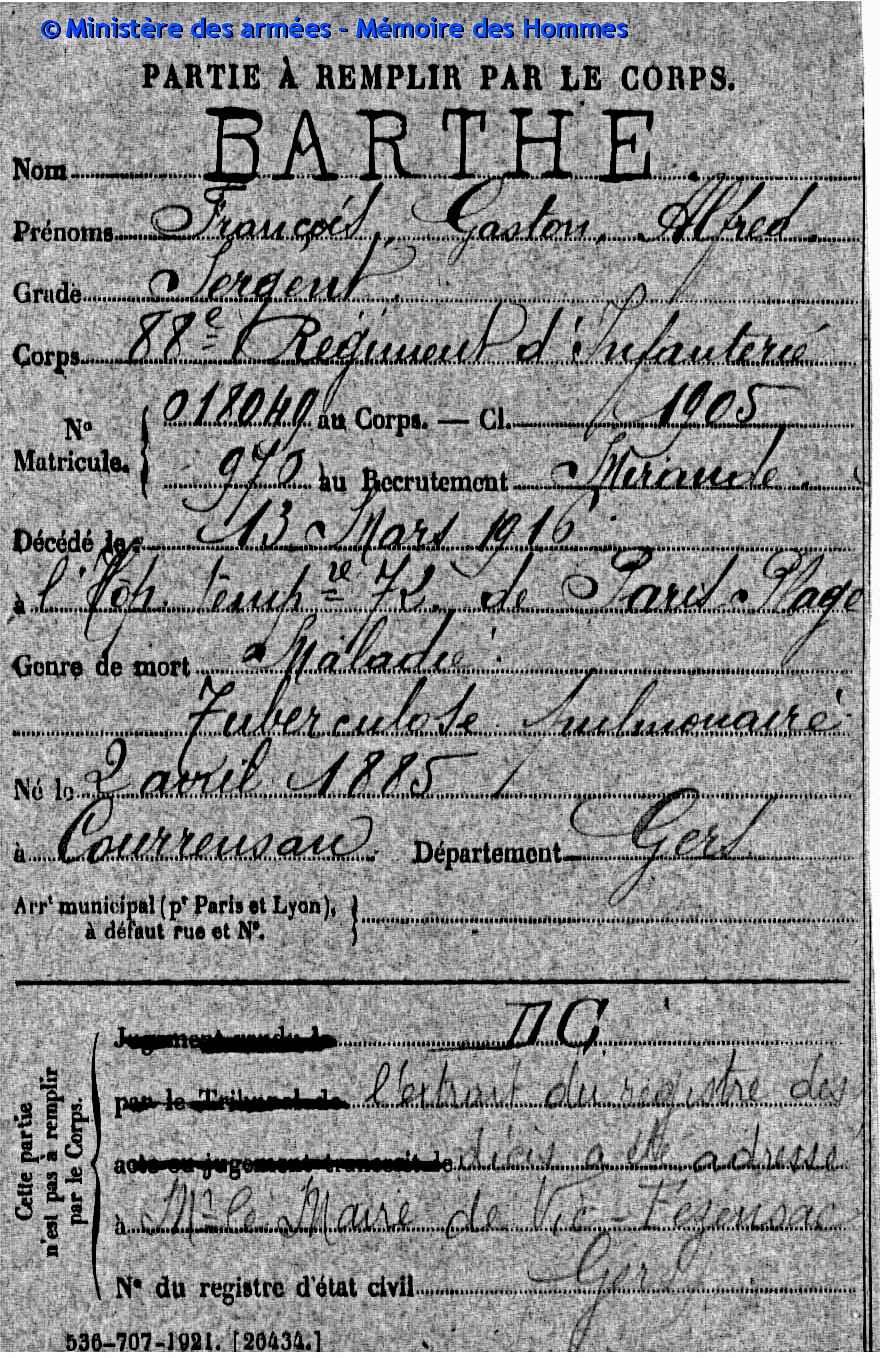 © Ministère des armées - Mémoire des Hommes
PARTIE À REMPLIR PAR LE CORPS.
Nom BARTHE
Prénoms François, Gaston, Alfred.
Grade Sergent.
Corps 88e Régiment d'Infanterie
No Matricule. 018049 au Corps. — Cl. 1905
970 au Recrutement Mirande.
Décédé le 13 Mars 1916
à l'Hôp. tempre 72 de Paris-Plage
Genre de mort Maladie
Tuberculose pulmonaire
Né le 2 avril 1885
à Courrensan Département Gers
Arrt municipal (pr Paris et Lyon),
à défaut rue et No.
Cette partie
n'est pas à remplir
par le Corps.
Jugement rendu le DC
par le Tribunal de l'extrait du registre des
acte ou jugement transcrit le décès a été adressé
à Mr le Maire de Vic-Fezensac
No du registre d'état civil Gers
536-707-1921. [26434.]